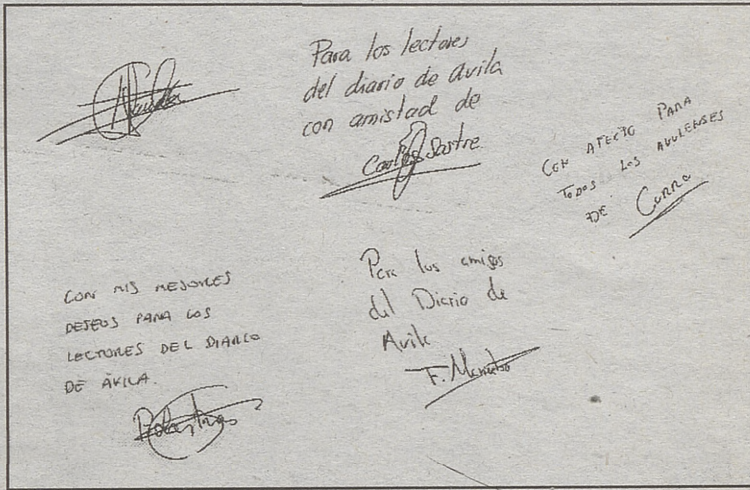 Para los lectores
del diario de avila
con amistad de
Carlos Sastre
CON AFECTO PARA
TODOS LOS ABULENSES
DE CURRO
CON MIS MEJORES
DESEOS PARA LOS
LECTORES DEL DIARIO
DE ÁVILA.
Para los amigos
del Diario de
Avila